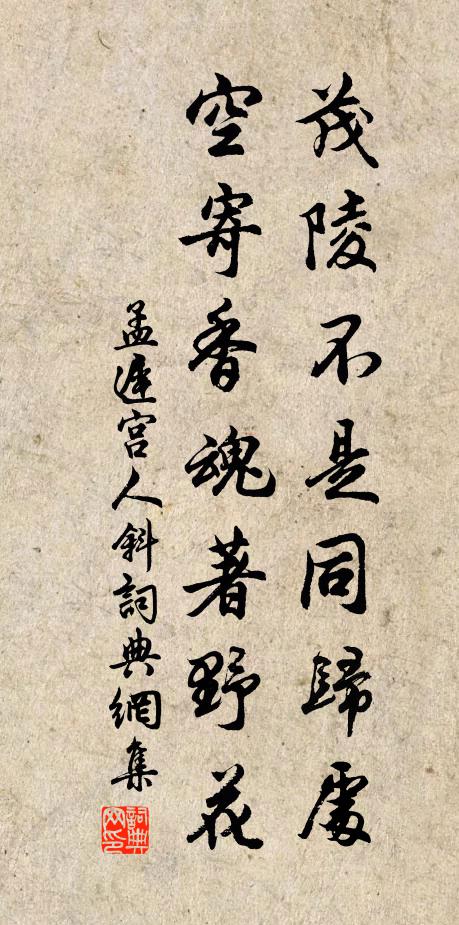 茂陵不是同歸處
空寄香魂著野花
孟遲宮人斜詞典網集
詞典网印